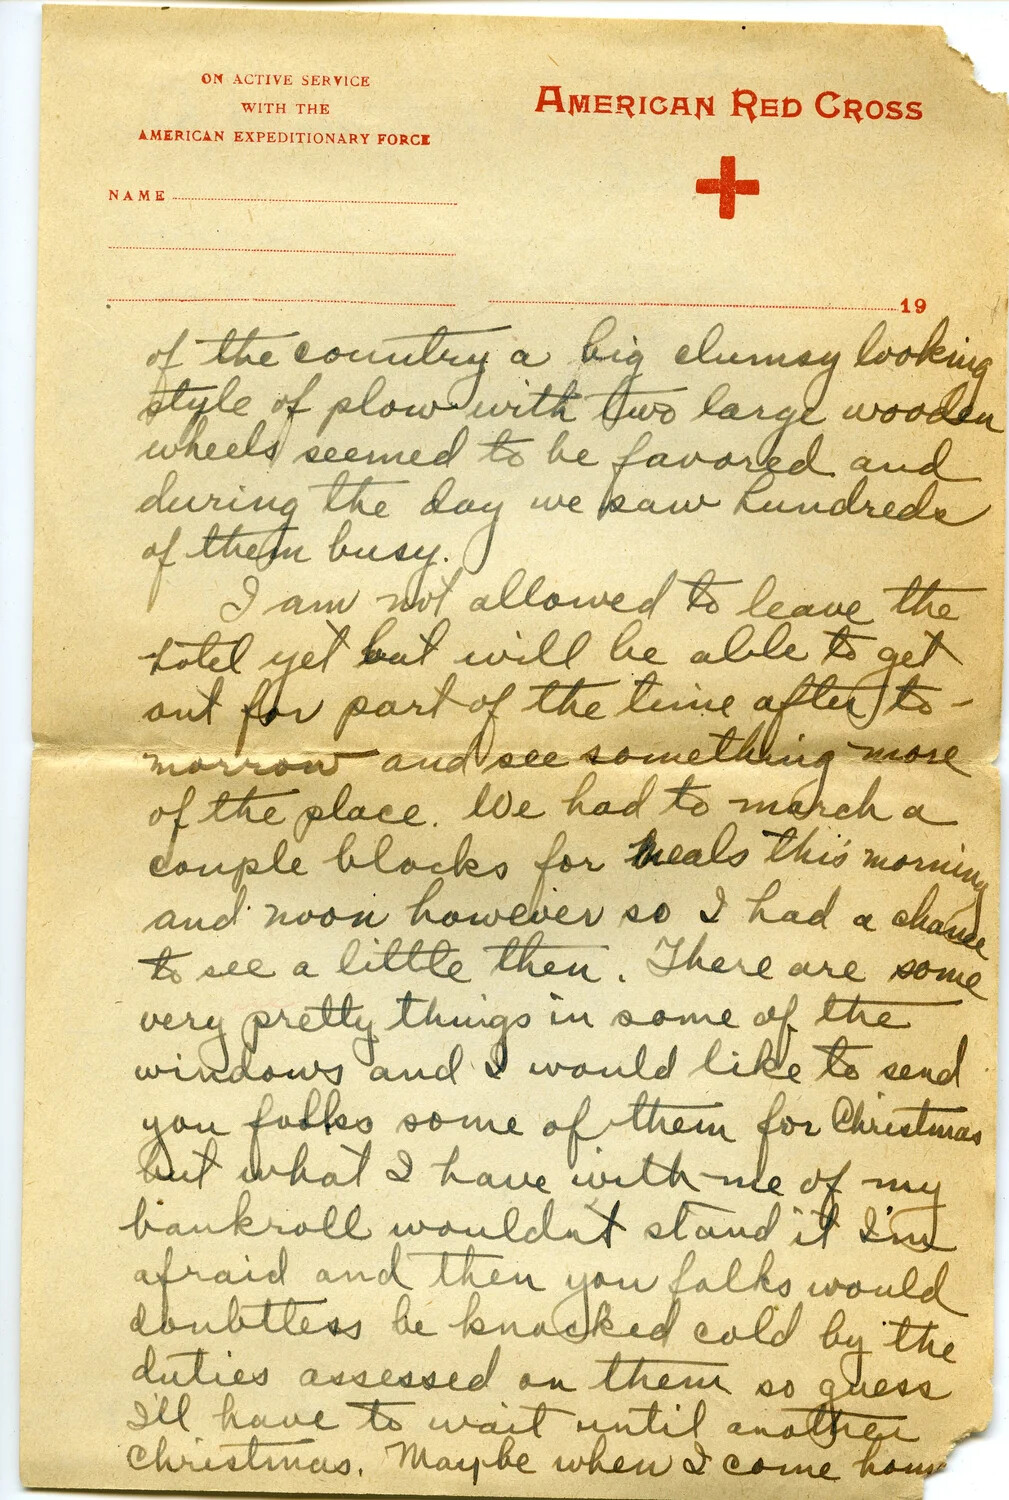 ON ACTIVE SERVICE
WITH THE
AMERICAN EXPEDITIONARY FORCE
NAME
AMERICAN RED CROSS
19
of the country a big clumsy looking
style of plow with two large wooden
wheels seemed to be favored and
during the day we saw hundreds
of them busy.
I am not allowed to leave the
hotel yet but will be able to get
out for part of the time after to-
morrow and see something more
of the place. We had to march a
couple blocks for meals this morning
and noon however so I had a chance
to see a little then. There are some
very pretty things in some of the
windows and I would like to send
you folks some of them for Christmas
but what I have with me of my
bankroll wouldn't stand it I'm
afraid and then you folks would
doubtless be knocked cold by the
duties assessed on them so guess
I'll have to wait until another
Christmas. Maybe when I come home